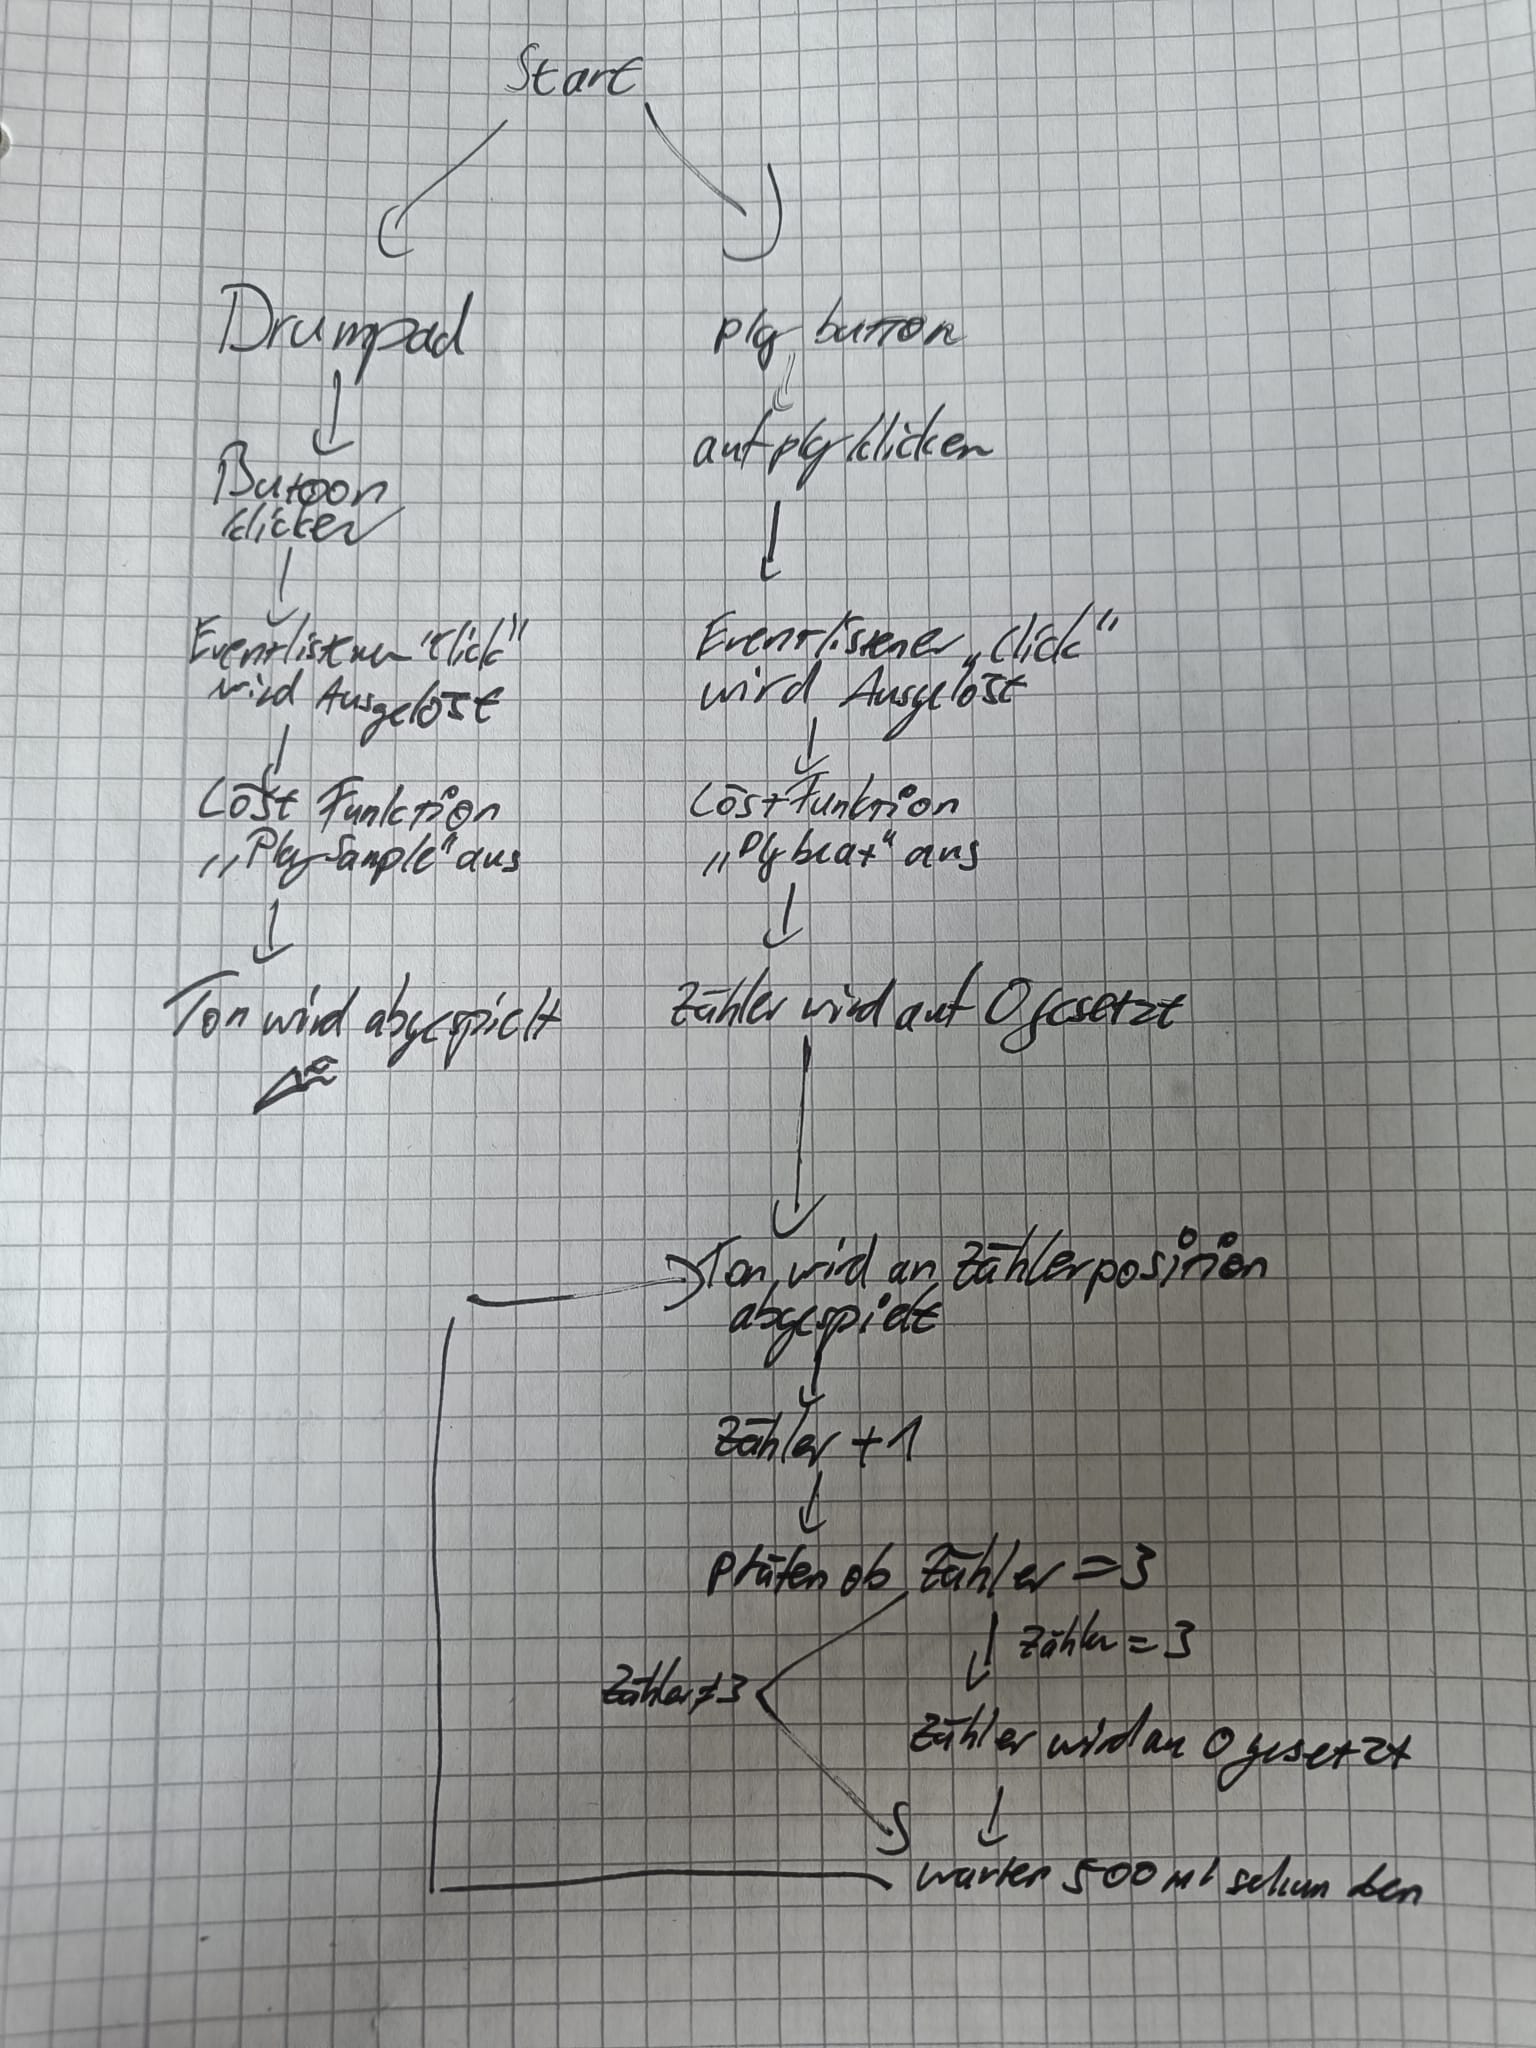 Start
Drumpad
Butoon
klicken
Eventlistener "click"
wird Ausgelöst
Löst Funktion
„Play Sample" aus
Ton wird abgespielt
play button
auf play klicken
Eventlistener „click"
wird Ausgelöst
Löst Funktion
„Play beat" aus
Zähler wird auf 0 gesetzt
Ton wird an Zählerposition
abgespielt
Zähler +1
Prüfen ob Zähler = 3
Zähler = 3
Zähler ≠ 3
Zähler wird au 0 gesetzt
warten 500 milsekunden